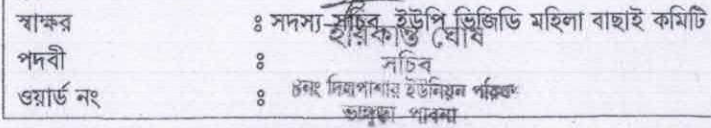 স্বাক্ষর ঃ সদস্য-সচিব, ইউপি ভিজিডি মহিলা বাছাই কমিটি
হরিকান্ত ঘোষ
পদবী ঃ সচিব
ওয়ার্ড নং ঃ ৪নং দিলপাশার ইউনিয়ন পরিষদ
ভাঙ্গুড়া পাবনা